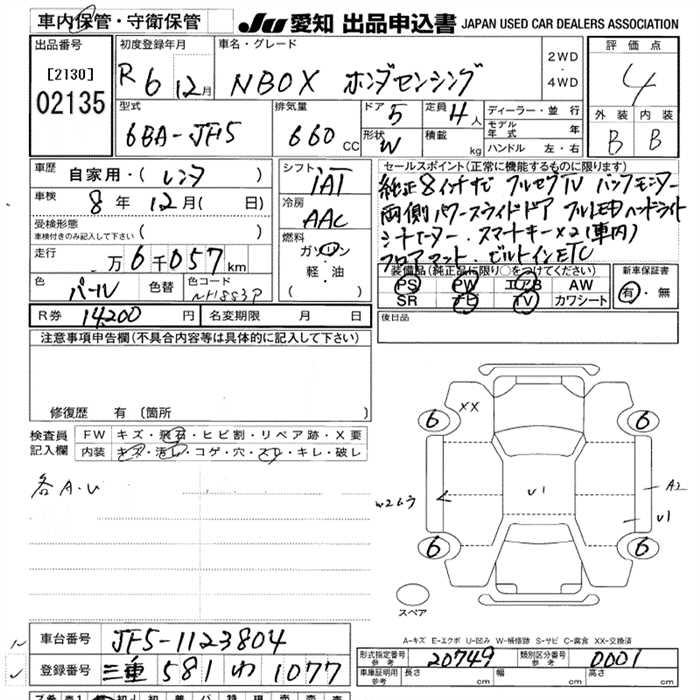 車内保管・守衛保管
JU 愛知 出品申込書 JAPAN USED CAR DEALERS ASSOCIATION
出品番号
[2130]
02135
初度登録年月
R6 12月
車名・グレード
NBOX ホンダセンシング
2WD
・
4WD
評価点
4
外装 内装
B B
型式
6BA-JF5
排気量
660 CC
ドア 5
形状 W
定員 4人
積載 kg
ディーラー・並行
モデル年式 年
ハンドル 左・右
車歴
自家用・(レンタ)
車検
8年12月( 日)
受検形態
車検付きのみ記入して下さい ( )
走行
万6千057km
色 パール 色替 色コード NH883P
シフト
IAT
冷房
AAC
燃料
ガソリン
軽・油
( )
セールスポイント(正常に機能するものに限ります)
純正8インチナビ フルセグTV バックモニター
両側パワースライドドア フルLEDヘッドライト
シートヒーター. スマートキー×2(車内)
フロアマット. ビルトインETC
装備品(純正品に限り○をつけてください)
PS PW エアB AW
SR ナビ TV カワシート
新車保証書
有・無
R券 14200円 名変期限 月 日
後日品
注意事項申告欄(不具合内容等は具体的に記入して下さい)
修復歴 有 〔箇所 〕
検査員記入欄
FW キズ・飛石・ヒビ割・リペア跡・X要
内装 キズ・汚レ・コゲ・穴・スレ・キレ・破レ
各A.U
XX
6 6
W2ムラ U1 A2
U1
6 6
スペア
A-キズ E-エクボ U-凹み W-補修跡 S-サビ C-腐食 XX-交換済
車台番号 JF5-1123804
登録番号 三重 581 わ 1077
形式指定番号 参考 20749 類別区分番号 参考 0001
車庫証明用 参考 長さ cm 幅 cm 高さ cm